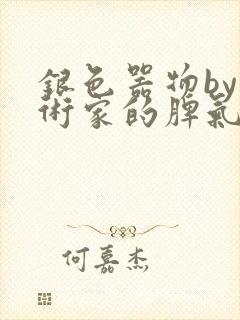 銀色器物by
術家的脾氣
何嘉杰